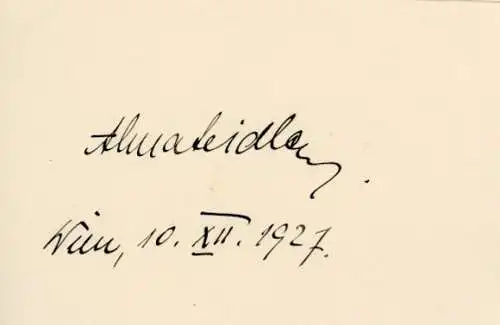 Alma Seidler
Wien, 10. XII. 1927.